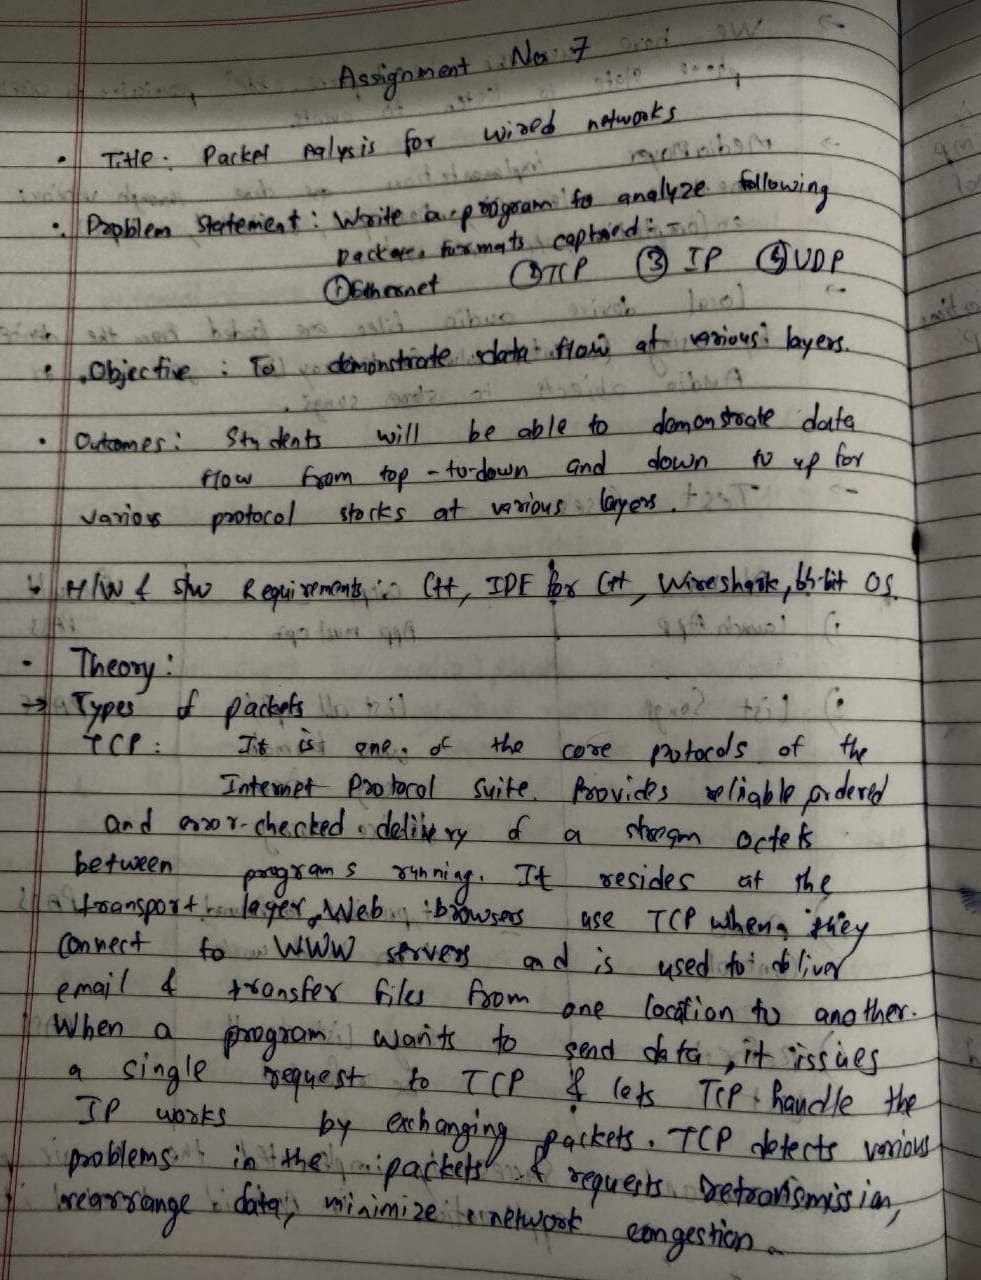 Assignment No. 7
• Title: Packet Aalysis for wired networks
• Problem Statement: Write a program to analyze following
packet formats captured:
① Ethernet ② TCP ③ IP ④ UDP
• Objective : To demonstrate data flow at various layers.
• Outcomes: Students will be able to demonstrate data
flow from top-to-down and down to up for
various protocol stacks at various layers.
H/W & S/W Requirements: C++, IDE for C++, Wireshark, 64-bit OS.
• Theory:
→ Types of packets
TCP: It is one of the core protocols of the
Internet Protocol Suite. Provides reliable ordered
and error-checked delivery of a stream octets
between programs running. It resides at the
transport layer. Web browsers use TCP when they
connect to WWW servers and is used to deliver
email & transfer files from one location to another.
When a program wants to send data, it issues
a single request to TCP & lets TCP handle the
IP works by exchanging packets. TCP detects various
problems in the packets & requests retransmission,
rearrange data, minimize network congestion.